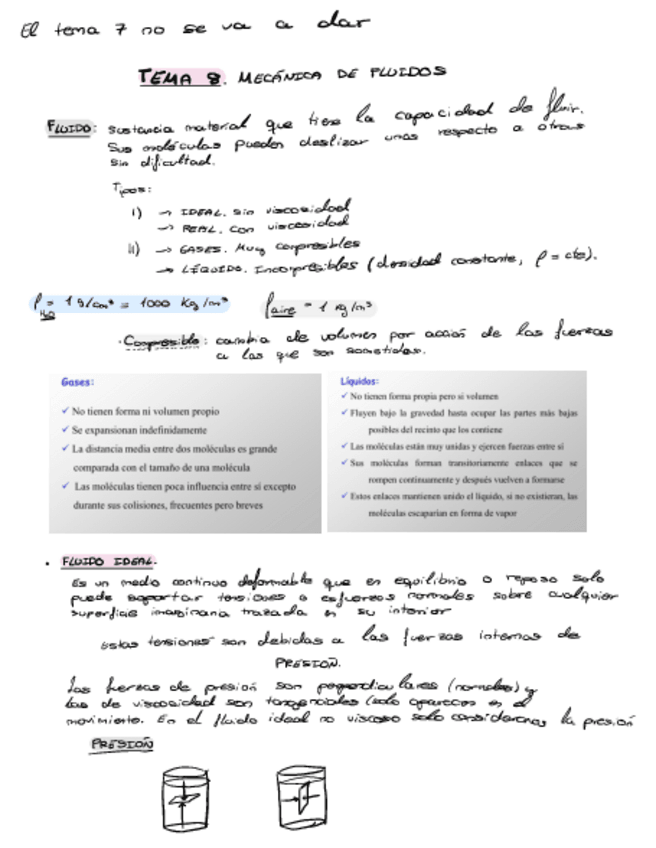 El tema 7 no se va a dar
TEMA 8. MECÁNICA DE FLUIDOS
FLUIDO: sustancia material que tiene la capacidad de fluir.
Sus moléculas pueden deslizar unas respecto a otras
sin dificultad.
Tipos:
i) → IDEAL. Sin viscosidad
→ REAL. Con viscosidad
ii) → GASES. Muy compresibles
→ LÍQUIDO. Incompresibles (densidad constante, ρ = cte).
ρ H₂O = 1 g/cm³ = 1000 Kg/m³ ρ aire = 1 Kg/m³
· Compresible: cambia de volumen por acción de las fuerzas
a las que son sometidas.
Gases:
✓ No tienen forma ni volumen propio
✓ Se expansionan indefinidamente
✓ La distancia media entre dos moléculas es grande
comparada con el tamaño de una molécula
✓ Las moléculas tienen poca influencia entre si excepto
durante sus colisiones, frecuentes pero breves
Líquidos:
✓ No tienen forma propia pero si volumen
✓ Fluyen bajo la gravedad hasta ocupar las partes más bajas
posibles del recinto que los contiene
✓ Las moléculas están muy unidas y ejercen fuerzas entre sí
✓ Sus moléculas forman transitoriamente enlaces que se
rompen continuamente y después vuelven a formarse
✓ Estos enlaces mantienen unido el líquido, si no existieran, las
moléculas escaparían en forma de vapor
· FLUIDO IDEAL.
Es un medio continuo deformable que en equilibrio o reposo solo
puede soportar tensiones o esfuerzos normales sobre cualquier
superficie imaginaria trazada en su interior
Estas tensiones son debidas a las fuerzas internas de
PRESIÓN.
Las fuerzas de presión son perpendiculares (normales) y
las de viscosidad son tangenciales (solo aparecen en el
movimiento. En el fluido ideal no viscoso solo consideramos la presión
PRESIÓN